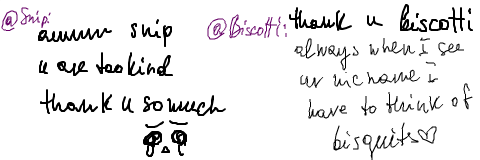 @Snip:
awwww snip
u are too kind
thank u so much
@Biscotti:
thank u biscotti
always when i see
ur nicname i
have to think of
bisquits♡